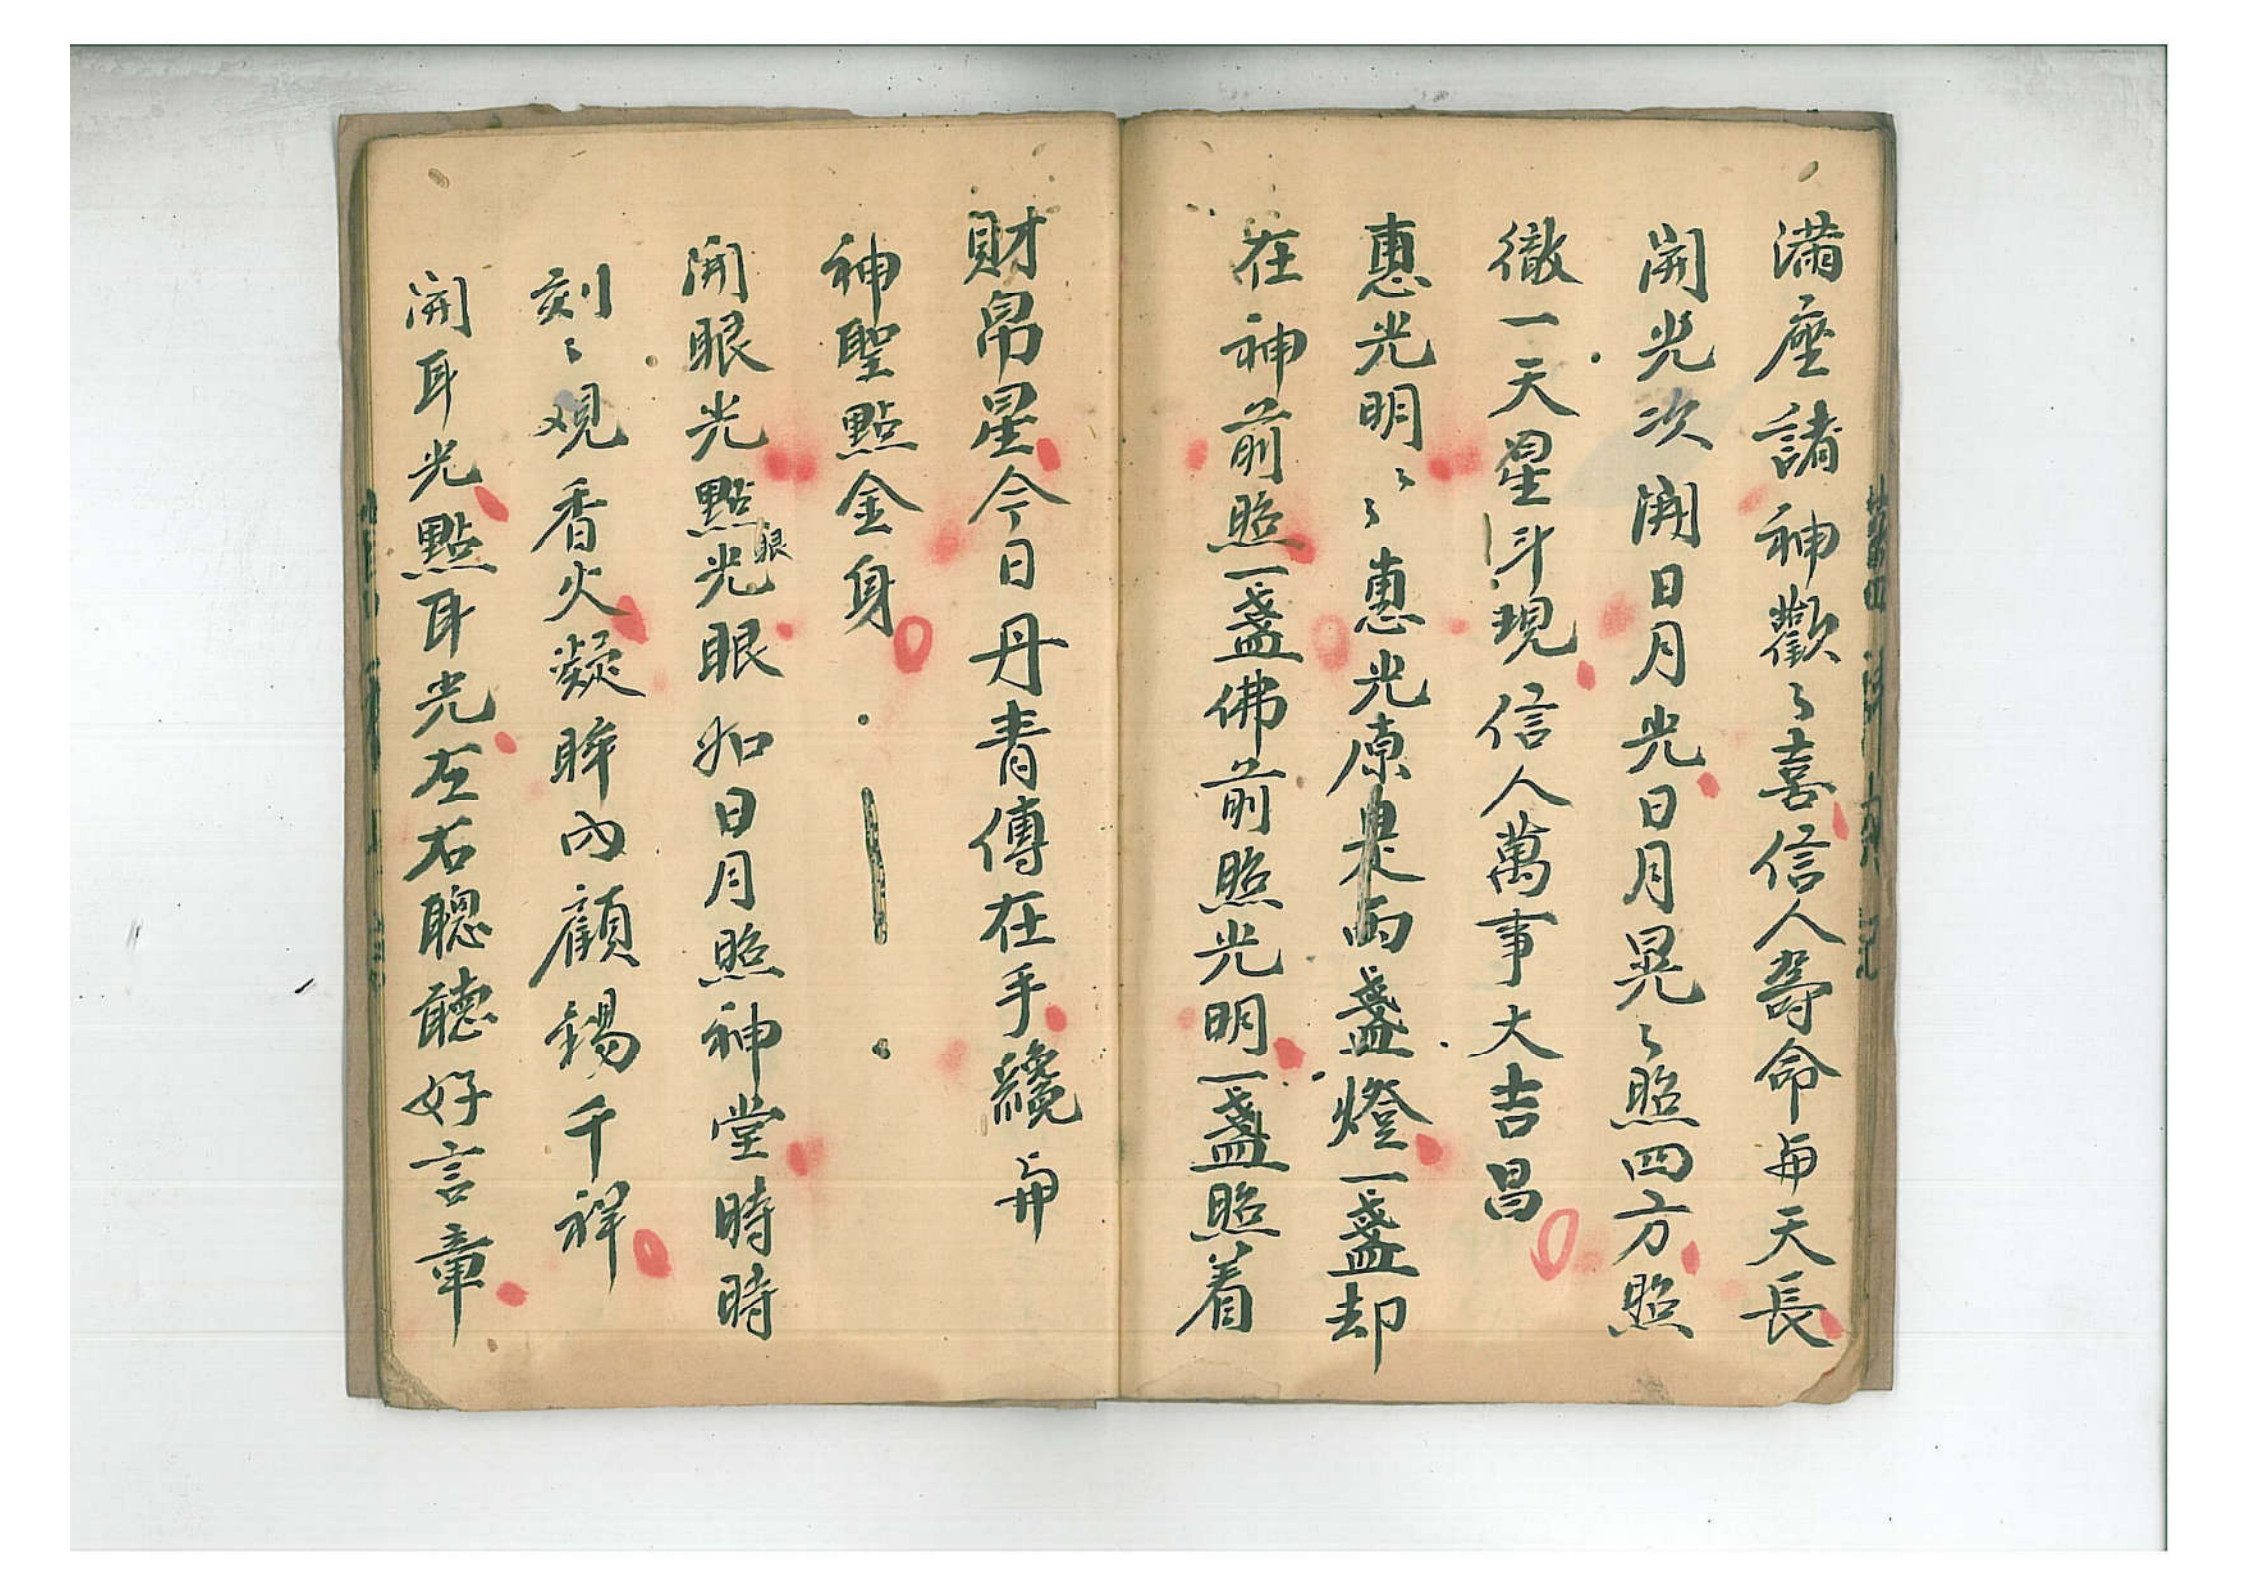 滿座諸神歡〻喜信人壽命与天長
開光次開日月光日月晃〻照四方照
徹一天星斗現信人萬事大吉昌
惠光明〻〻惠光原是両盞燈一盞却
在神前照一盞佛前照光明一盞照着
財帛星今日丹青傳在手纔与
神聖點金身
開眼光點眼光眼如日月照神堂時時
刻〻观香火凝眸內顧錫千祥
開耳光點耳光左右聰聽好言章